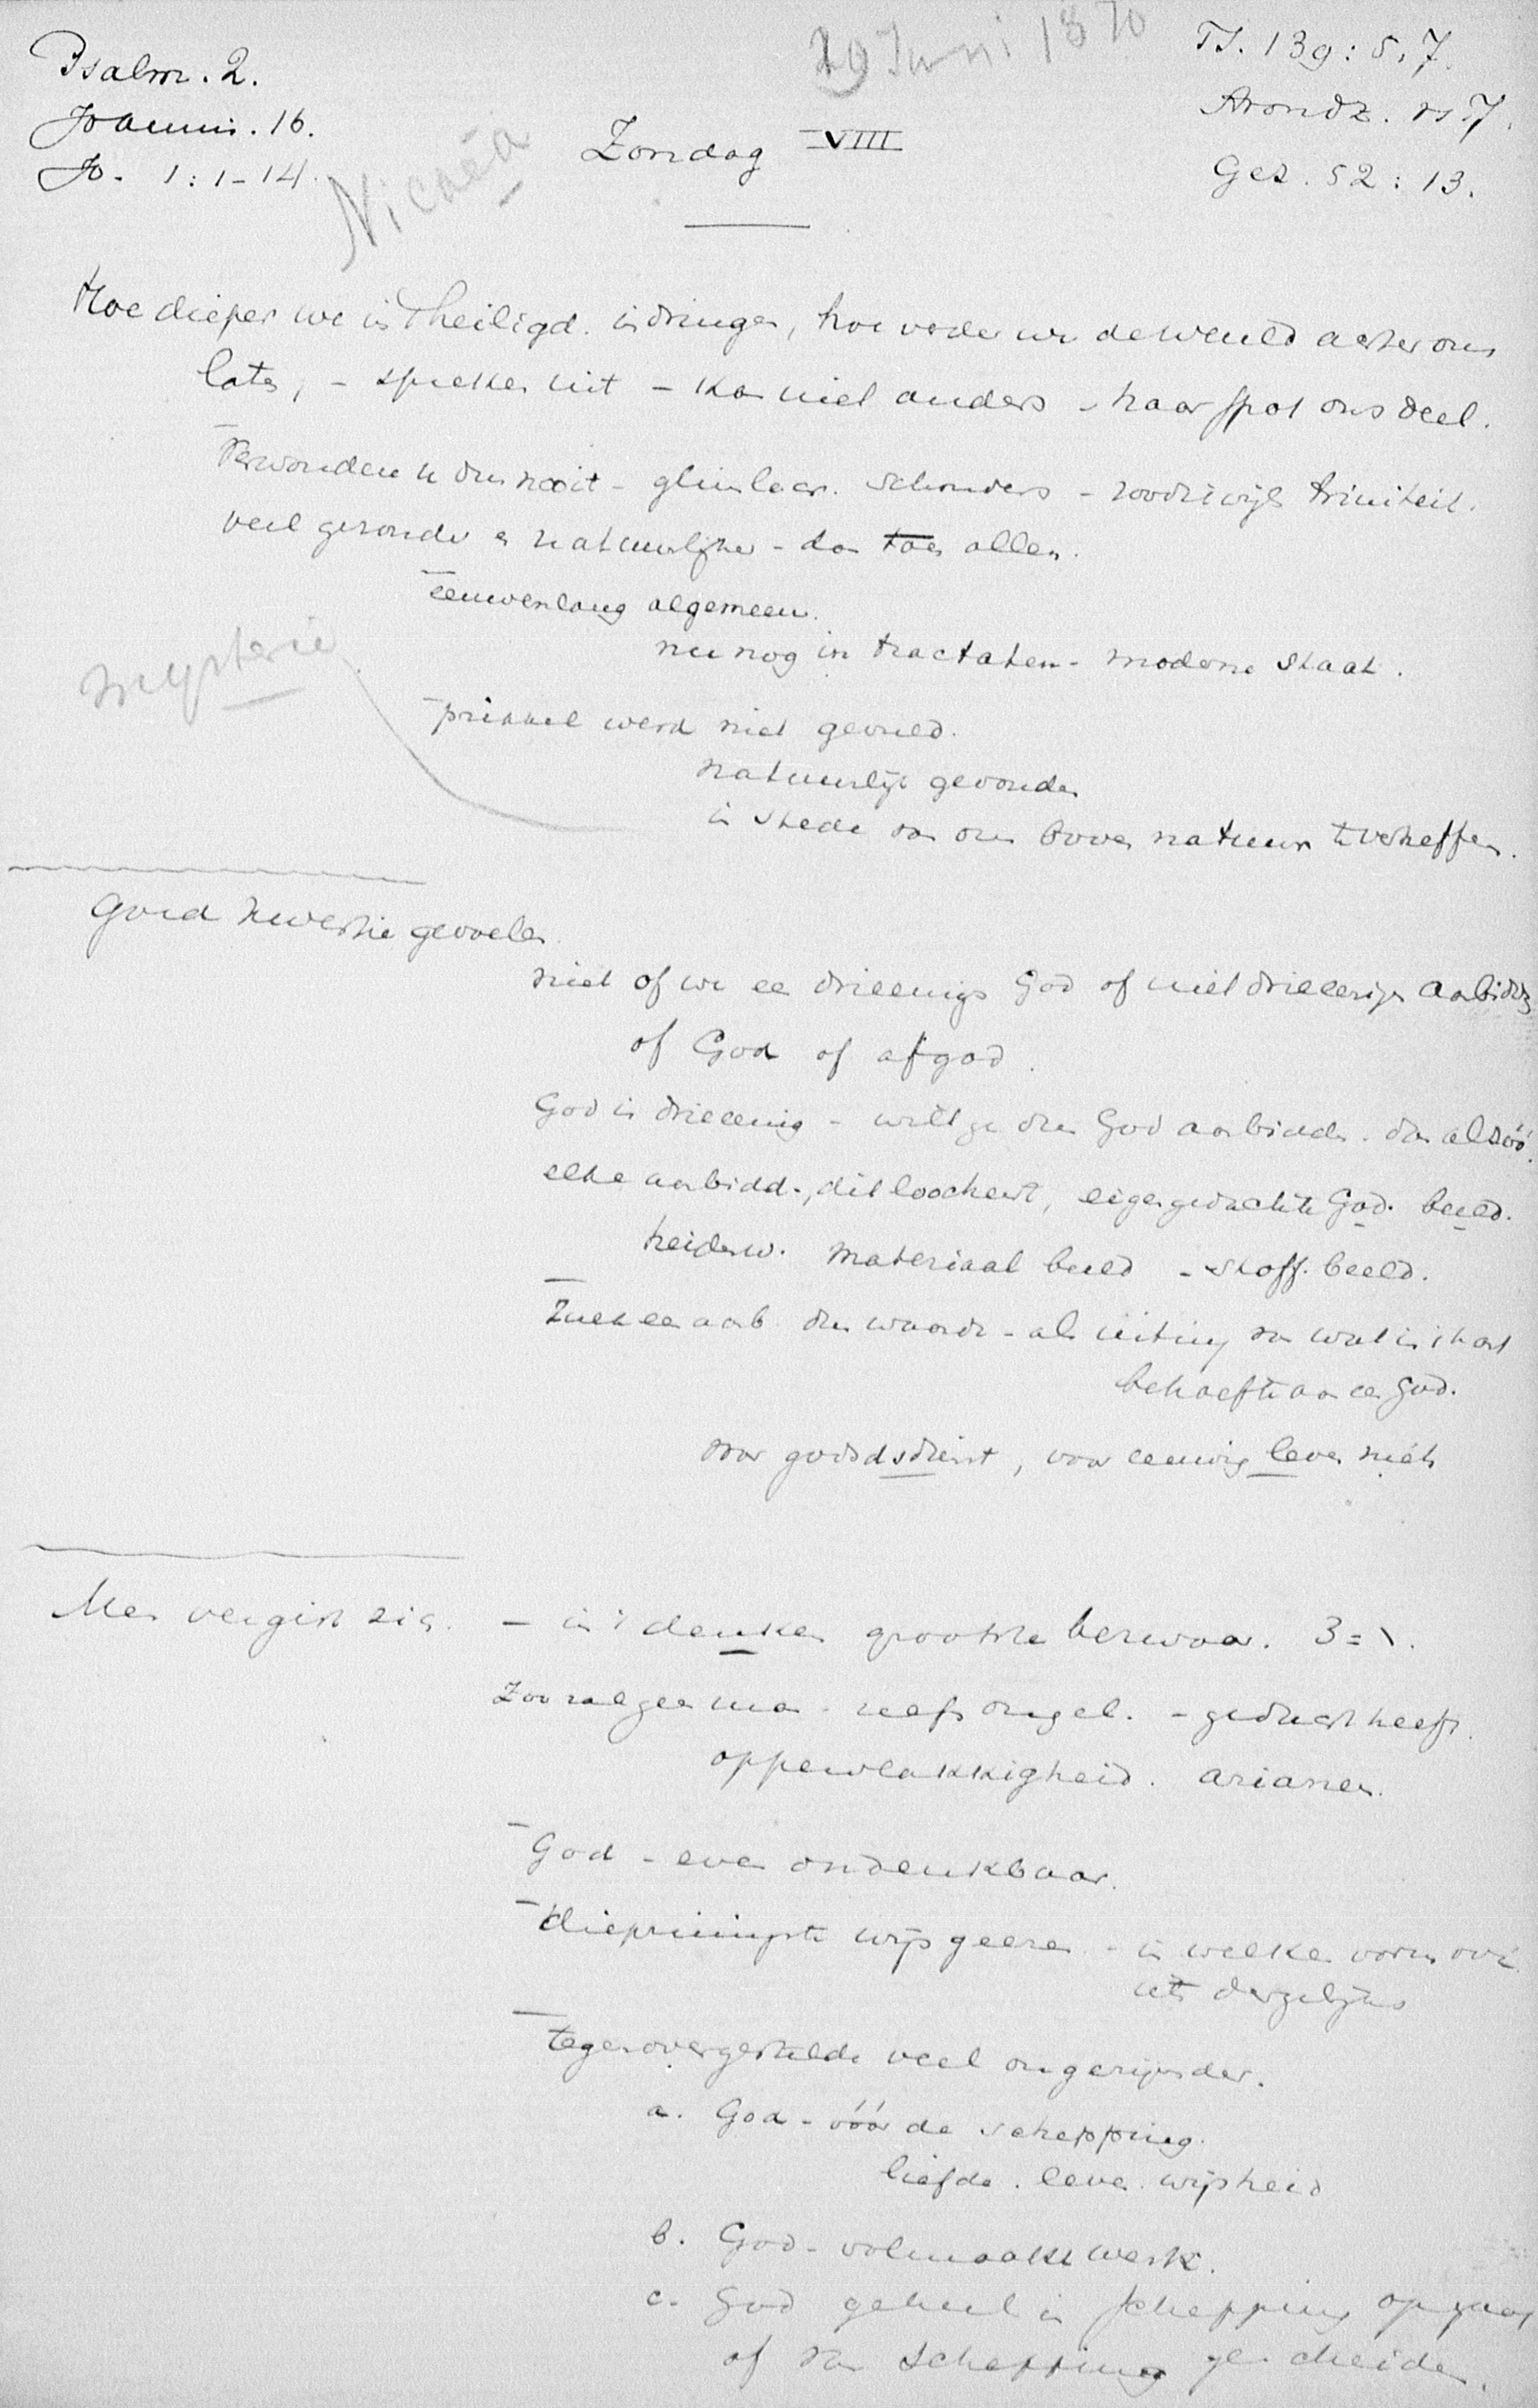 Psalm. 2.
Joannis. 16.
Jo. 1:1-14.
Nicaëa
19 Juni 1870
Zondag VIII
Ps. 139: 5, 7.
Avondz. vs 7.
Gez. 52: 13.
Hoe dieper we in 't heiligd. indringen, hoe verder we de wereld achter ons
laten, - spreken uit - kan niet anders - haar spot ons deel.
Verwonderen u dus nooit - glimlach. schouders - triniteit.
veel gezonder en natuurlijker - dan allen.
eeuwenlang algemeen.
nu nog in tractaten - moderne staat.
mysterie
prikkel werd niet gevoeld.
natuurlijk gevonden
in stede van ons boven natuur te verheffen.
Goed kwestie gevoelen.
niet of we een drieenige God of niet drieenige aanbidden
of God of afgod.
God is drieenig - wilt ge dien God aanbidden - dan alzóó.
elke aanbidd., dit loochent, eigengedachte God. beeld.
heidenw. materiaal beeld - stoff. beeld.
Zulk een aanb. dus waarde - als uiting van wat in 't hart
behoefte aan een God.
voor godsdienst, voor eeuwig leven niets
Men vergist zich. - in 't denken grootste bezwaar. 3=1.
Zoo zal geen man - zelfs ongel. - gedacht heeft.
oppervlakkigheid. arianen.
God - even ondenkbaar.
diepzinnigste wijsgeeren - in welken vorm ook
iets dergelijks
tegenovergestelde veel ongerijmder.
a. God - vóór de schepping.
liefde. leven. wijsheid
b. God - volmaakt werk.
c. God geheel in schepping opgaat
of van schepping gescheiden.